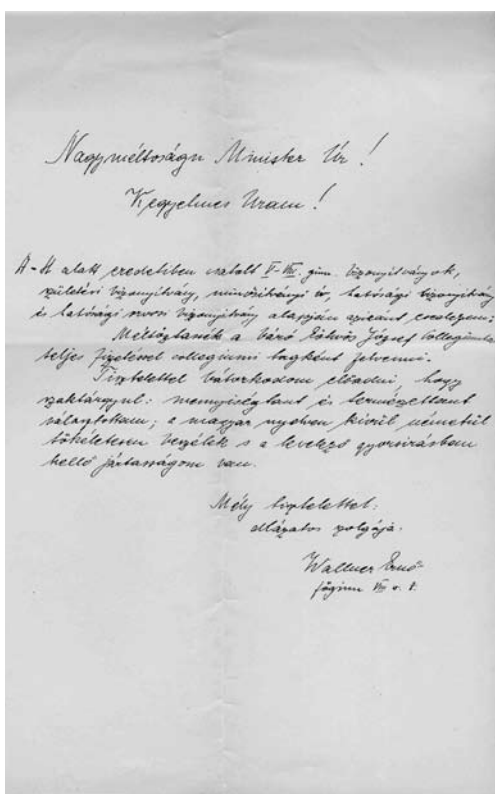 Nagyméltóságu Minister Úr!
Kegyelmes Uram!
A-H alatt eredetiben csatolt V-VIII. gimn. bizonyítványok,
születési bizonyítvány, minősítványi ív, hatósági bizonyítvány
és hatósági orvosi bizonyítvány alapján aziránt esedezem:
Méltóztassék a Báró Eötvös József Collegiumba
teljes fizetéssel collegiumi tagként felvenni.
Tisztelettel bátorkodom előadni, hogy
szaktárgyul: mennyiségtant és természettant
választottam; a magyar nyelven kívül németül
tökéletesen beszélek s a levelező gyorsírásban
kellő jártasságom van.
Mély tisztelettel:
alázatos szolgája:
Wallner Ernő
főgimn VIII o. t.